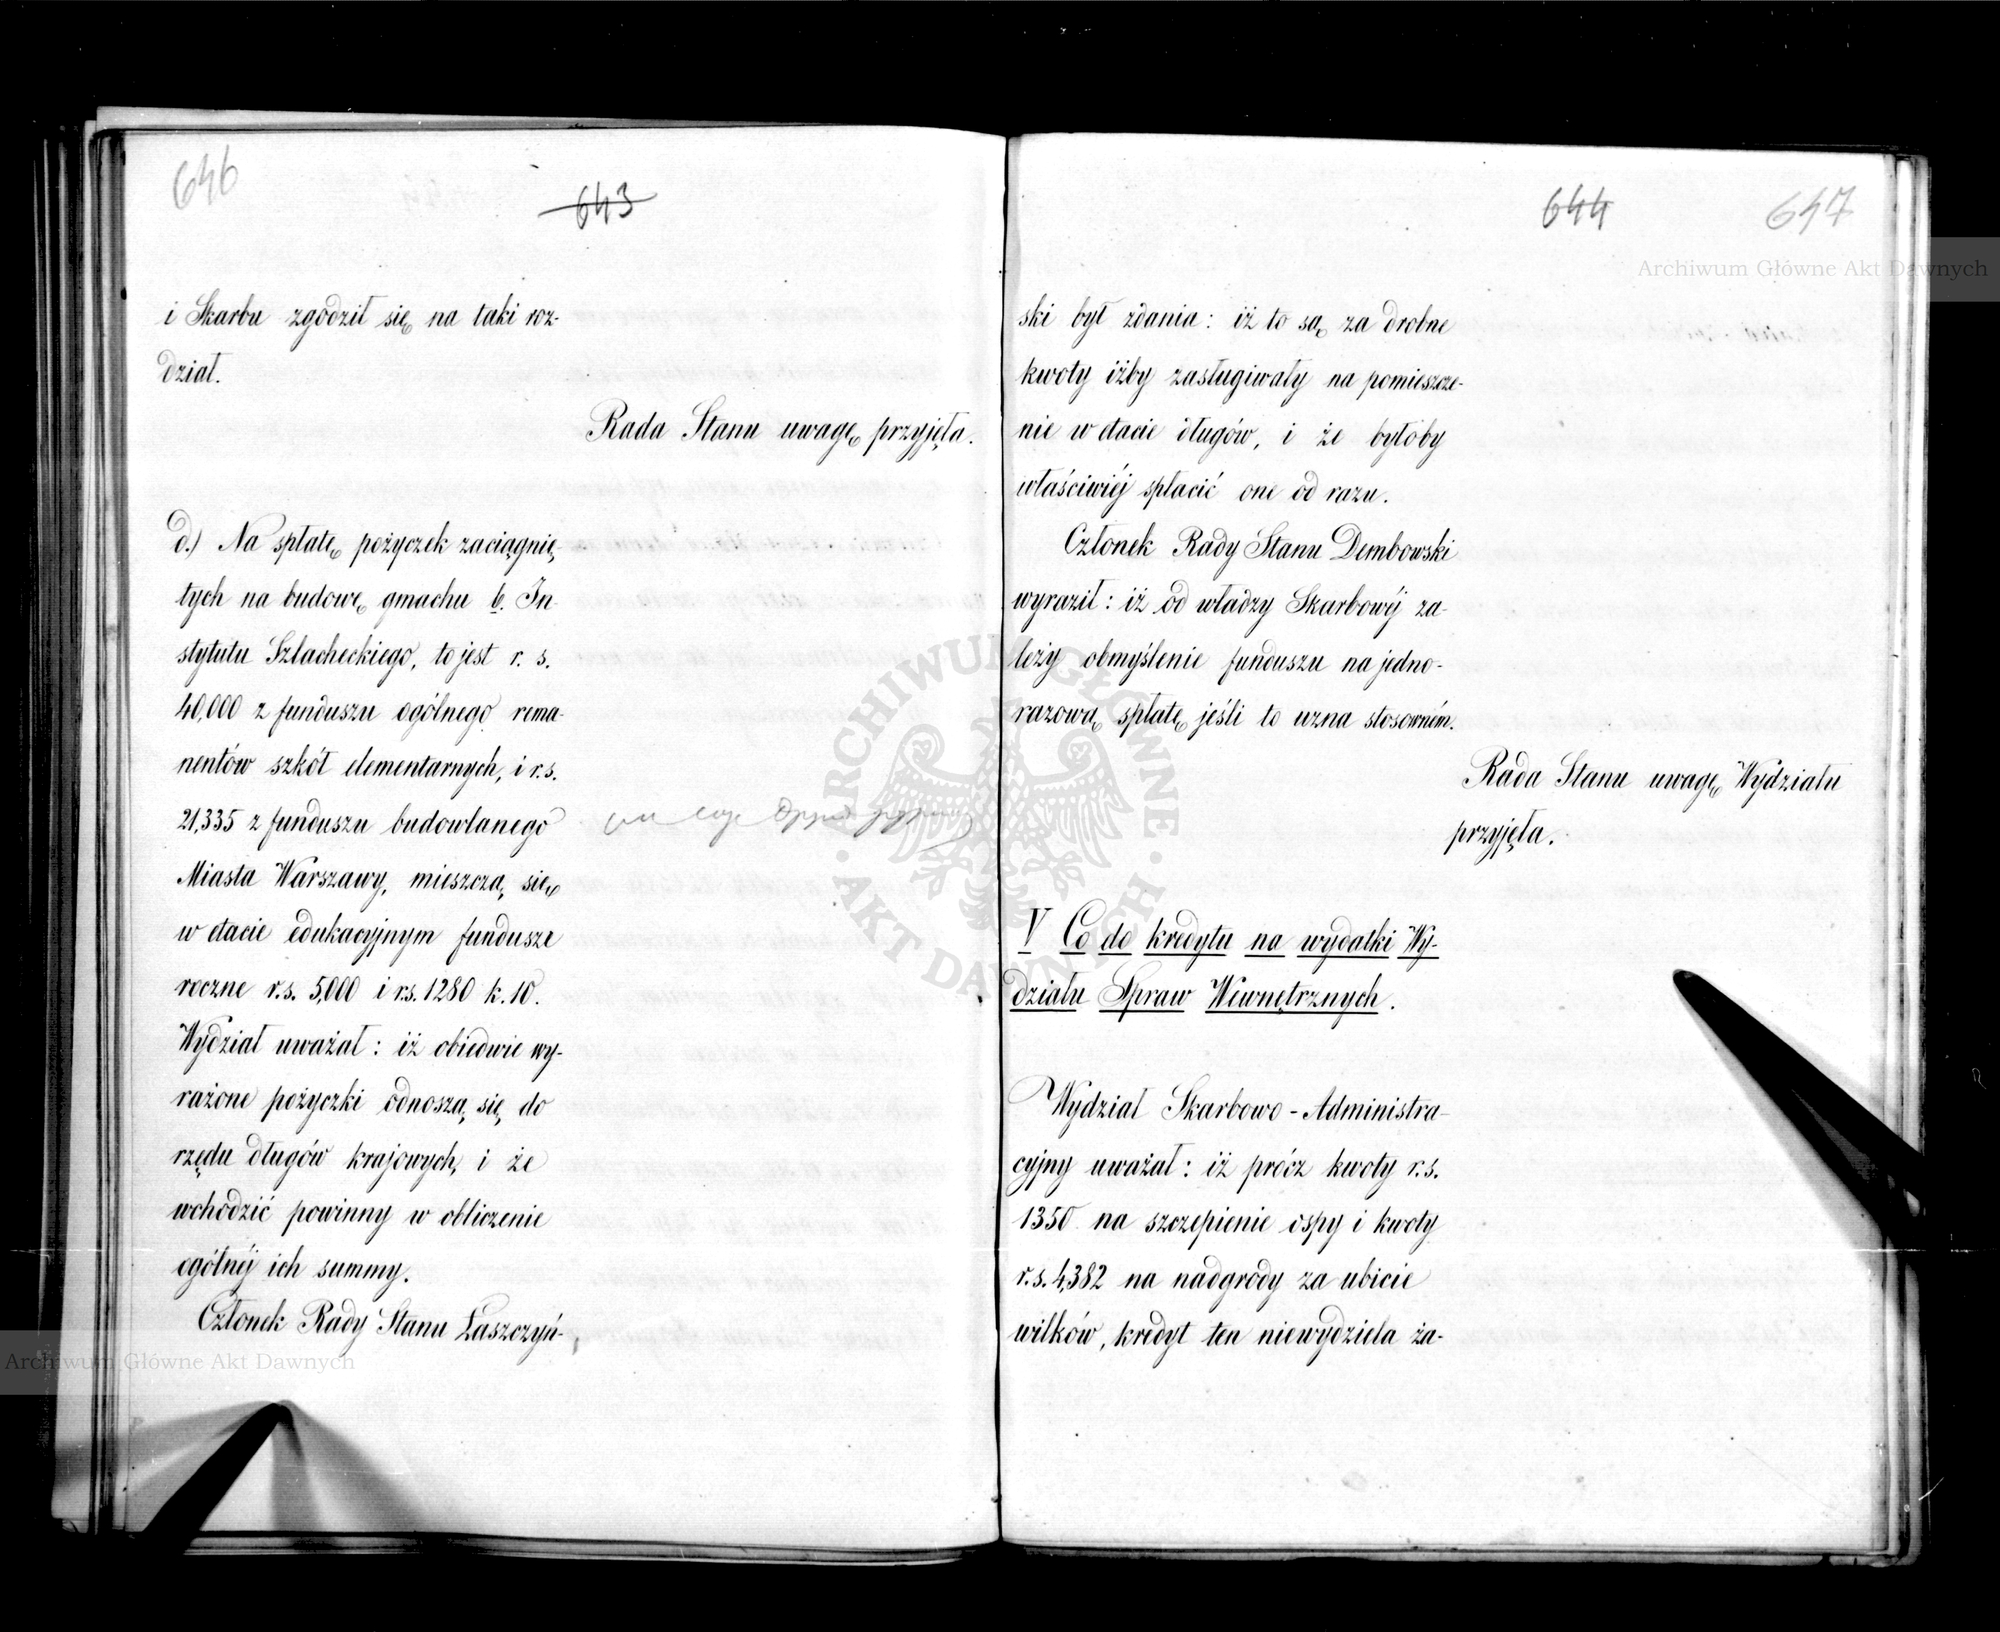 646
643
i Skarbu zgodził się na taki roz-
dział.
Rada Stanu uwagę przyjęła.
d.) Na spłatę pożyczek zaciągnię-
tych na budowę gmachu b. In-
stytutu Szlacheckiego, to jest r. s.
40,000 z funduszu ogólnego rema-
nentów szkół elementarnych, i r.s.
21,335 z funduszu budowlanego
Miasta Warszawy, mieszczą się
w etacie edukacyjnym fundusze
roczne r.s. 5,000 i r.s. 1280 k. 10.
Wydział uważał: iż obiedwie wy-
rażone pożyczki odnoszą się do
rzędu długów krajowych, i że
wchodzić powinny w obliczenie
ogólnéj ich summy.
Członek Rady Stanu Łaszczyń-
644
647
ski był zdania: iż to są za drobne
kwoty iżby zasługiwały na pomieszcze-
nie w etacie długów, i że byłoby
właściwiéj spłacić one od razu.
Członek Rady Stanu Dembowski
wyraził: iż od władzy Skarbowéj za-
leży obmyślenie funduszu na jedno-
razową spłatę jeśli to uzna stosowném.
Rada Stanu uwagę Wydziału
przyjęła.
V Co do kredytu na wydatki Wy-
działu Spraw Wewnętrznych.
Wydział Skarbowo-Administra-
cyjny uważał: iż prócz kwoty r.s.
1350 na szczepienie ospy i kwoty
r.s. 4,382 na nadgrody za ubicie
wilków, kredyt ten niewydziela ża-
Archiwum Główne Akt Dawnych
Archiwum Główne Akt Dawnych
ARCHIWUM GŁÓWNE
AKT DAWNYCH